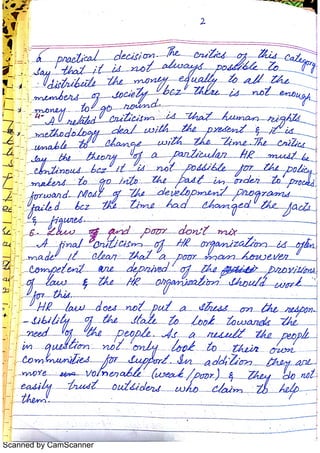 2
a practical decision. The critics of this category
say that it is not always possible to
- distribute the money equally to all the
members of society bcz there is not enough
money to go round.
4- A related criticism is that human rights
methodology deal with the present & it is
unable to change with the time. The critics
say the theory of a particular HR must be
continous bcz it is not possible for the policy
makers to go into the past in order to proceed
forward. Most of the development programs
failed bcz the time had changed the facts
& figures.
5- Law and poor don't mix
A final criticism of HR organization is often
made. It clear that a poor man however
competent are deprived of the provisions
of law & the HR organization should work
for this.
HR law does not put a stress on the respon-
- sibility of the state to look towards the
need of the people. As a result the people
in question not only look to their own
communities for support. In addition they are
more volnerable (weak/poor) & they do not
easily trust outsiders who claim to help
them.
Scanned by CamScanner